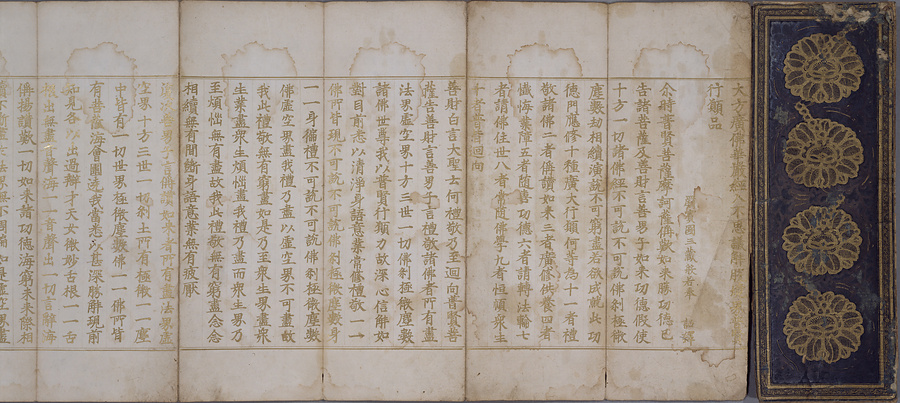 大方廣佛華嚴經入不思議解脫境界
行願品
罽賓國三藏般若奉 詔譯
尒時普賢菩薩摩訶薩稱歎如來勝功德已
告諸菩薩及善財言善男子如來功德假使
十方一切諸佛經不可說不可說佛刹極微
塵數劫相續演說不可窮盡若欲成就此功
德門應修十種廣大行願何等為十一者禮
敬諸佛二者稱讚如來三者廣修供養四者
懺悔業障五者隨喜功德六者請轉法輪七
者請佛住世八者常隨佛學九者恒順衆生
十者普皆迴向
善財白言大聖云何禮敬乃至迴向普賢菩
薩告善財言善男子言禮敬諸佛者所有盡
法界虛空界十方三世一切佛刹極微塵數
諸佛世尊我以普賢行願力故深心信解如
對目前悉以清淨身語意業常修禮敬一一
佛所皆現不可說不可說佛刹極微塵數身
一一身徧禮不可說不可說佛刹極微塵數
佛虛空界盡我禮乃盡以虛空界不可盡故
我此禮敬無有窮盡如是乃至衆生界盡衆
生業盡衆生煩惱盡我禮乃盡而衆生界乃
至煩惱無有盡故我此禮敬無有窮盡念念
相續無有間斷身語意業無有疲厭
復次善男子言稱讚如來者所有盡法界虛
空界十方三世一切刹土所有極微一一塵
中皆有一切世界極微塵數佛一一佛所皆
有菩薩海會圍遶我當悉以甚深勝解現前
知見各以出過辯才天女微妙舌根一一舌
根出無盡音聲海一一音聲出一切言辭海
稱揚讚歎一切如來諸功德海窮未來際相
續不斷盡於法界無不周徧如是虛空界盡